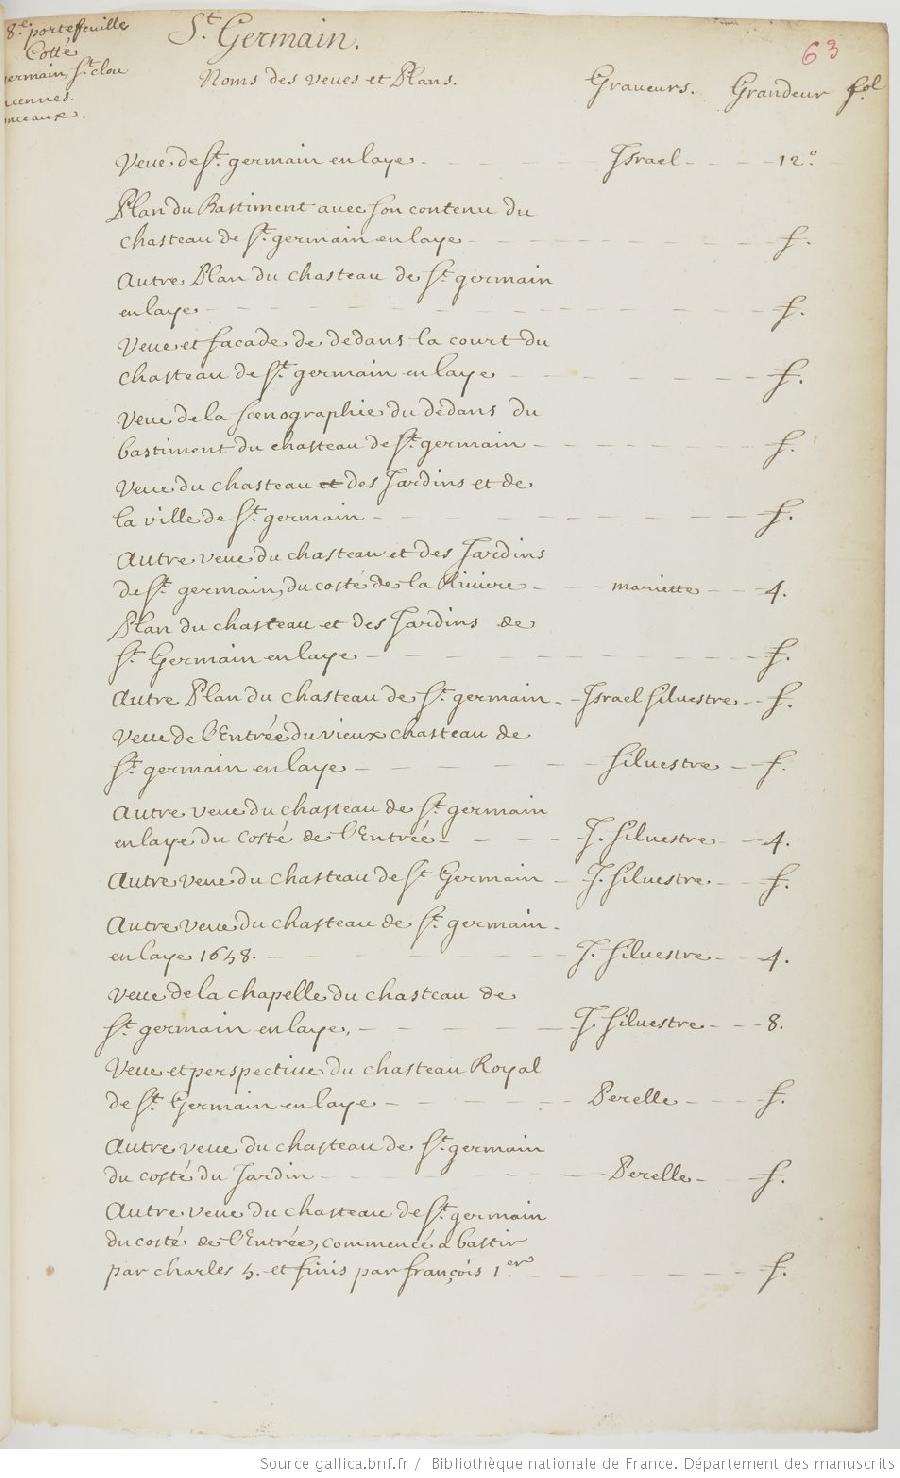 8.e portefeuille
Cotté
germain, St. clou
ncennes.
nceaux.
St. Germain.
63
Noms des veues et Plans. Graveurs. Grandeur fol
Veue de St. germain en laye - Israel - 12.o
Plan du Bastiment avec son contenu du
chasteau de St. germain en laye - f.
Autre Plan du chasteau de St. germain
en laye - f.
Veue et facade de dedans la court du
chasteau de St. germain en laye - f.
Veue de la scenographie du dedans du
bastiment du chasteau de St. germain - f.
Veue du chasteau et des Jardins et de
la ville de St. germain - f.
Autre veue du chasteau et des Jardins
de St. germain, du costé de la Riviere - mariette - 4.
Plan du chasteau et des Jardins de
St. Germain en laye - f.
Autre Plan du chasteau de St. germain - Israel silvestre - f.
Veue de l'Entrée du vieux chasteau de
St. germain en laye - silvestre - f.
Autre veue du chasteau de St. germain
en laye du costé de l'Entrée - J. silvestre - 4.
Autre veue du chasteau de St Germain - J. silvestre - f.
Autre veue du chasteau de St. germain -
en laye 1658. - J. silvestre - 4.
Veue de la chapelle du chasteau de
St. germain en laye, - J. silvestre - 8.
Veue et perspective du chasteau Royal
de St. Germain en laye - Perelle - f.
Autre veue du chasteau de St. germain
du costé du Jardin - Perelle - f.
Autre veue du chasteau de St. germain
du costé de l'Entrée, commencé a bastir
par charles 5. et finis par françois 1.er - f.
Source gallica.bnf.fr / Bibliothèque nationale de France. Département des manuscrits